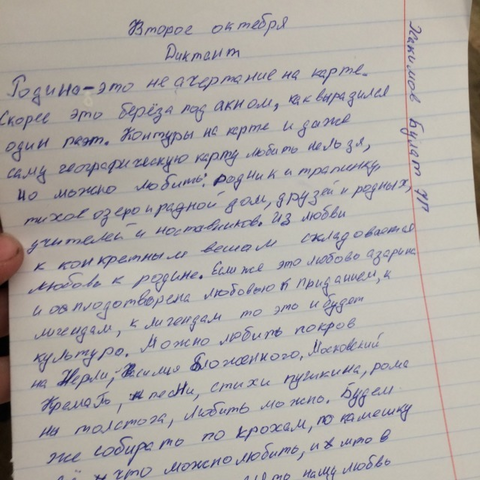 Второе октебря
Диктант
Родина-это не ачертание на карте.
Скорее это берёза под акном, как выразился
один паэт. Контуры на карте и даже
саму географическую карту любить нельзя,
но можно любить: родник и трапинку,
тихое озеро и радной дом, друзей и родных,
учителей и ноставников. Из любви
к конкретным вещам складовается
любовь к родине. Если же это любовь азарина
и оплодотворена любовью к приданием, к
лигендам, к лигендам то это и будет
культура. Можно любить покров
на Нерли, Василия Бложенного, Московский
Кремль, песни, стихи пушкина, рома
ны толстоза, Любить можно. Будем
же собирать по крохам, по камешку
что можно любить, и
нашу любвь
Булат